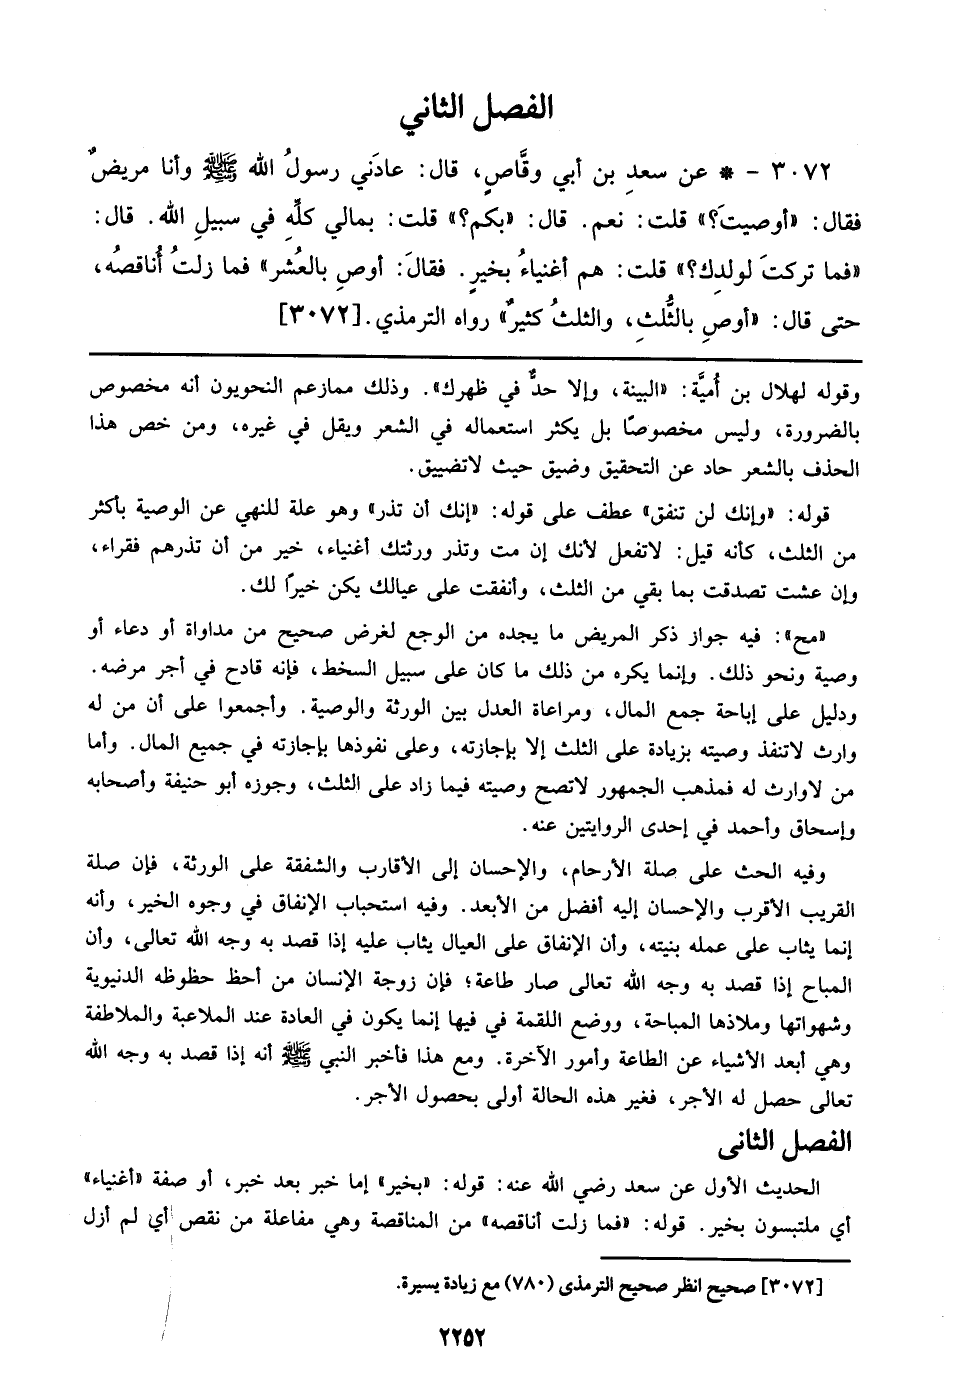 الفصل الثاني
٣٠٧٢ - * عن سعدِ بن أبي وقَّاصٍ، قال: عادَني رسولُ الله ﷺ وأنا مريضٌ
فقال: «أوصيتَ؟» قلت: نعم. قال: «بكم؟» قلت: بمالي كلِّهِ في سبيلِ الله. قال:
«فما تركتَ لولدِك؟» قلت: هم أغنياءُ بخيرٍ. فقالَ: أوصِ بالعُشر» فما زلتُ أُناقصهُ،
حتى قال: «أوصِ بالثُّلثِ، والثلثُ كثيرٌ» رواه الترمذي.[٣٠٧٢]
وقوله لهلال بن أُميَّة: «البينة، وإلا حدٌّ في ظهرك». وذلك ممازعم النحويون أنه مخصوص
بالضرورة، وليس مخصوصًا بل يكثر استعماله في الشعر ويقل في غيره، ومن خص هذا
الحذف بالشعر حاد عن التحقيق وضيق حيث لاتضييق.
قوله: «وإنك لن تنفق» عطف على قوله: «إنك أن تذر» وهو علة للنهي عن الوصية بأكثر
من الثلث، كأنه قيل: لاتفعل لأنك إن مت وتذر ورثتك أغنياء، خير من أن تذرهم فقراء،
وإن عشت تصدقت بما بقي من الثلث، وأنفقت على عيالك يكن خيرًا لك.
«مح»: فيه جواز ذكر المريض ما يجده من الوجع لغرض صحيح من مداواة أو دعاء أو
وصية ونحو ذلك. وإنما يكره من ذلك ما كان على سبيل السخط، فإنه قادح في أجر مرضه.
ودليل على إباحة جمع المال، ومراعاة العدل بين الورثة والوصية. وأجمعوا على أن من له
وارث لاتنفذ وصيته بزيادة على الثلث إلا بإجازته، وعلى نفوذها بإجازته في جميع المال. وأما
من لاوارث له فمذهب الجمهور لاتصح وصيته فيما زاد على الثلث، وجوزه أبو حنيفة وأصحابه
وإسحاق وأحمد في إحدى الروايتين عنه.
وفيه الحث على صلة الأرحام، والإحسان إلى الأقارب والشفقة على الورثة، فإن صلة
القريب الأقرب والإحسان إليه أفضل من الأبعد. وفيه استحباب الإنفاق في وجوه الخير، وأنه
إنما يثاب على عمله بنيته، وأن الإنفاق على العيال يثاب عليه إذا قصد به وجه الله تعالى، وأن
المباح إذا قصد به وجه الله تعالى صار طاعة؛ فإن زوجة الإنسان من أحظ حظوظه الدنيوية
وشهواتها وملاذها المباحة، ووضع اللقمة في فيها إنما يكون في العادة عند الملاعبة والملاطفة
وهي أبعد الأشياء عن الطاعة وأمور الآخرة. ومع هذا فأخبر النبي ﷺ أنه إذا قصد به وجه الله
تعالى حصل له الأجر، فغير هذه الحالة أولى بحصول الأجر.
الفصل الثانى
الحديث الأول عن سعد رضي الله عنه: قوله: «بخير» إما خبر بعد خبر، أو صفة «أغنياء»
أي ملتبسون بخير. قوله: «فما زلت أناقصه» من المناقصة وهي مفاعلة من نقص أي لم أزل
[٣٠٧٢] صحيح انظر صحيح الترمذى (٧٨٠) مع زيادة يسيرة.
٢٢٥٢